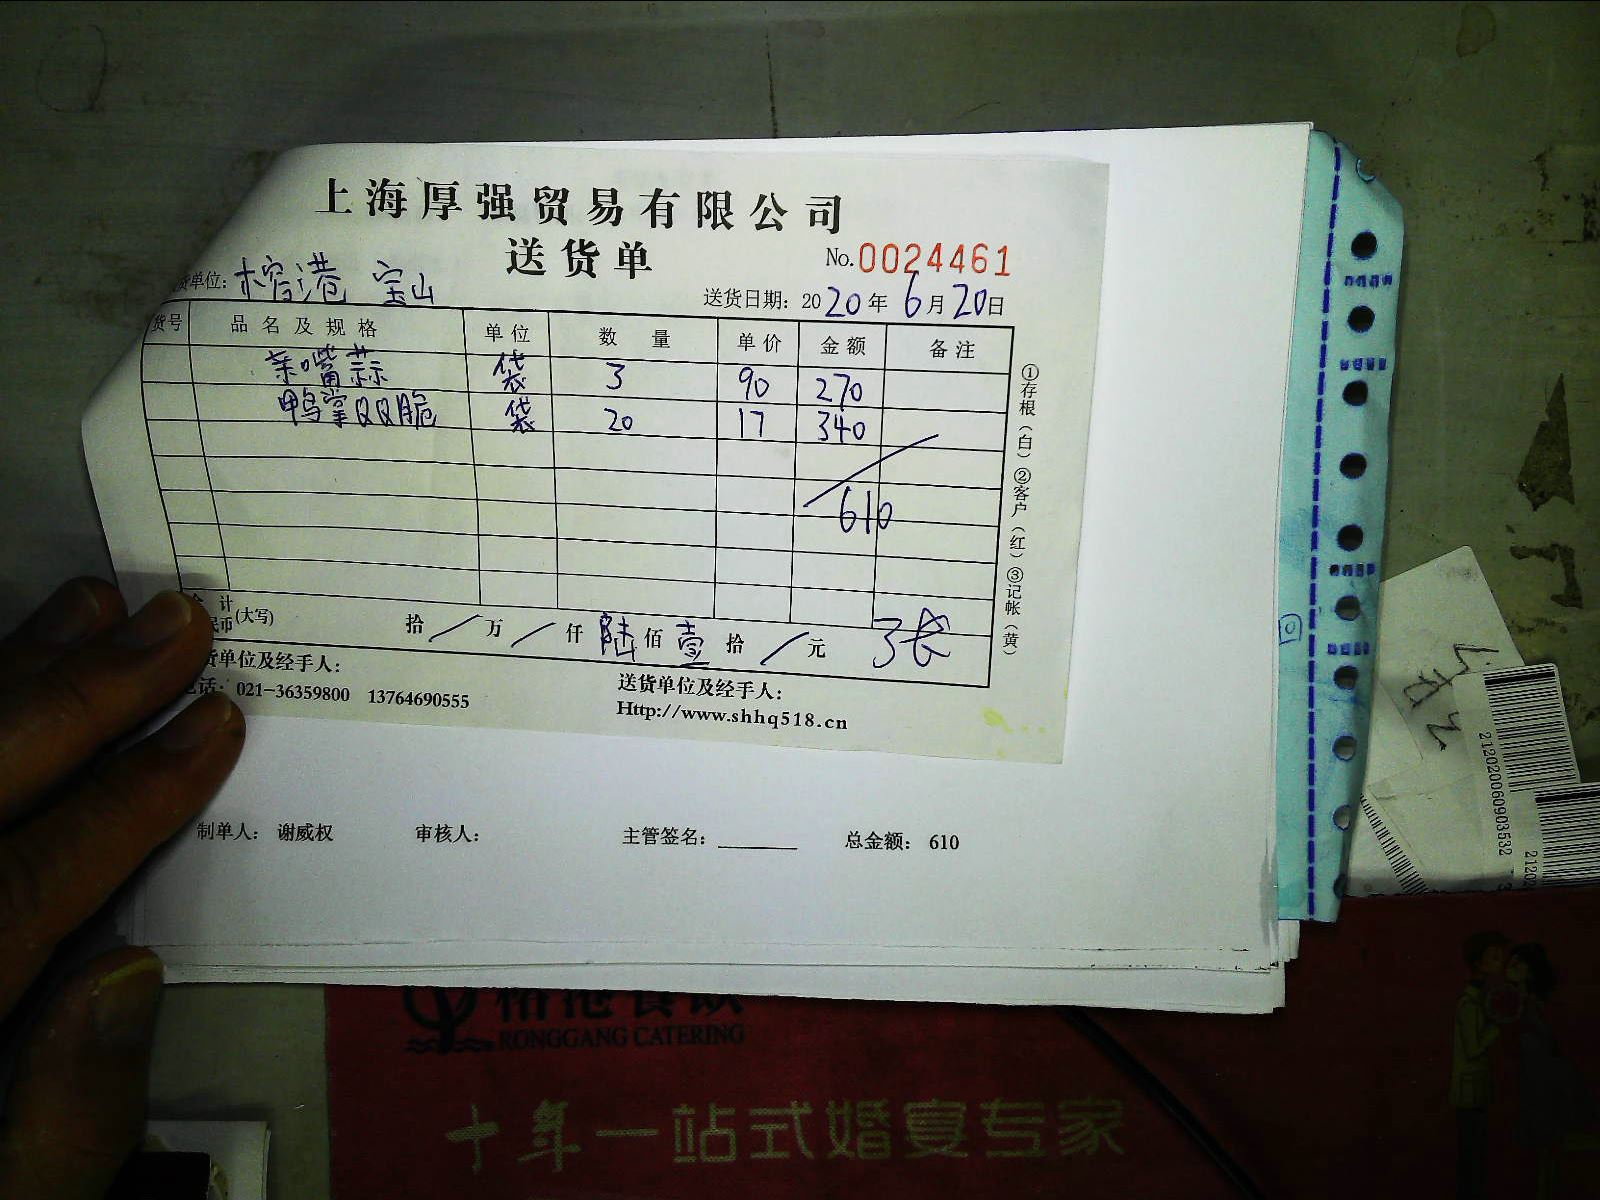 上海厚强贸易有限公司
送货单
No.0024461
货单位：榕港 宝山
送货日期：2020年6月20日
货号 品名及规格 单位 数量 单价 金额 备注
亲嘴蒜 袋 3 90 270
鸭掌双双脆 袋 20 17 340
610
①存根（白）②客户（红）③记帐（黄）
合计
民币(大写) 拾 / 万 / 仟 陆 佰 壹 拾 / 元 3张
货单位及经手人：
送货单位及经手人：
电话：021-36359800 13764690555
Http://www.shhq518.cn
制单人：谢威权 审核人： 主管签名：________ 总金额：610
212020060903532
2120
榕港餐饮
RONGGANG CATERING
十年一站式婚宴专家